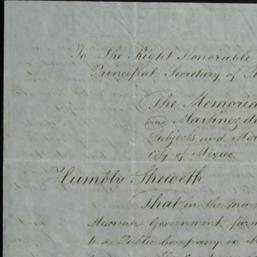 To The Right Honorable
Principal Secretary of
The Memoria
Martinez d
Subjects and Me
City of Mexico
Humbly Sheweth
That in the
Government
to a Public Company